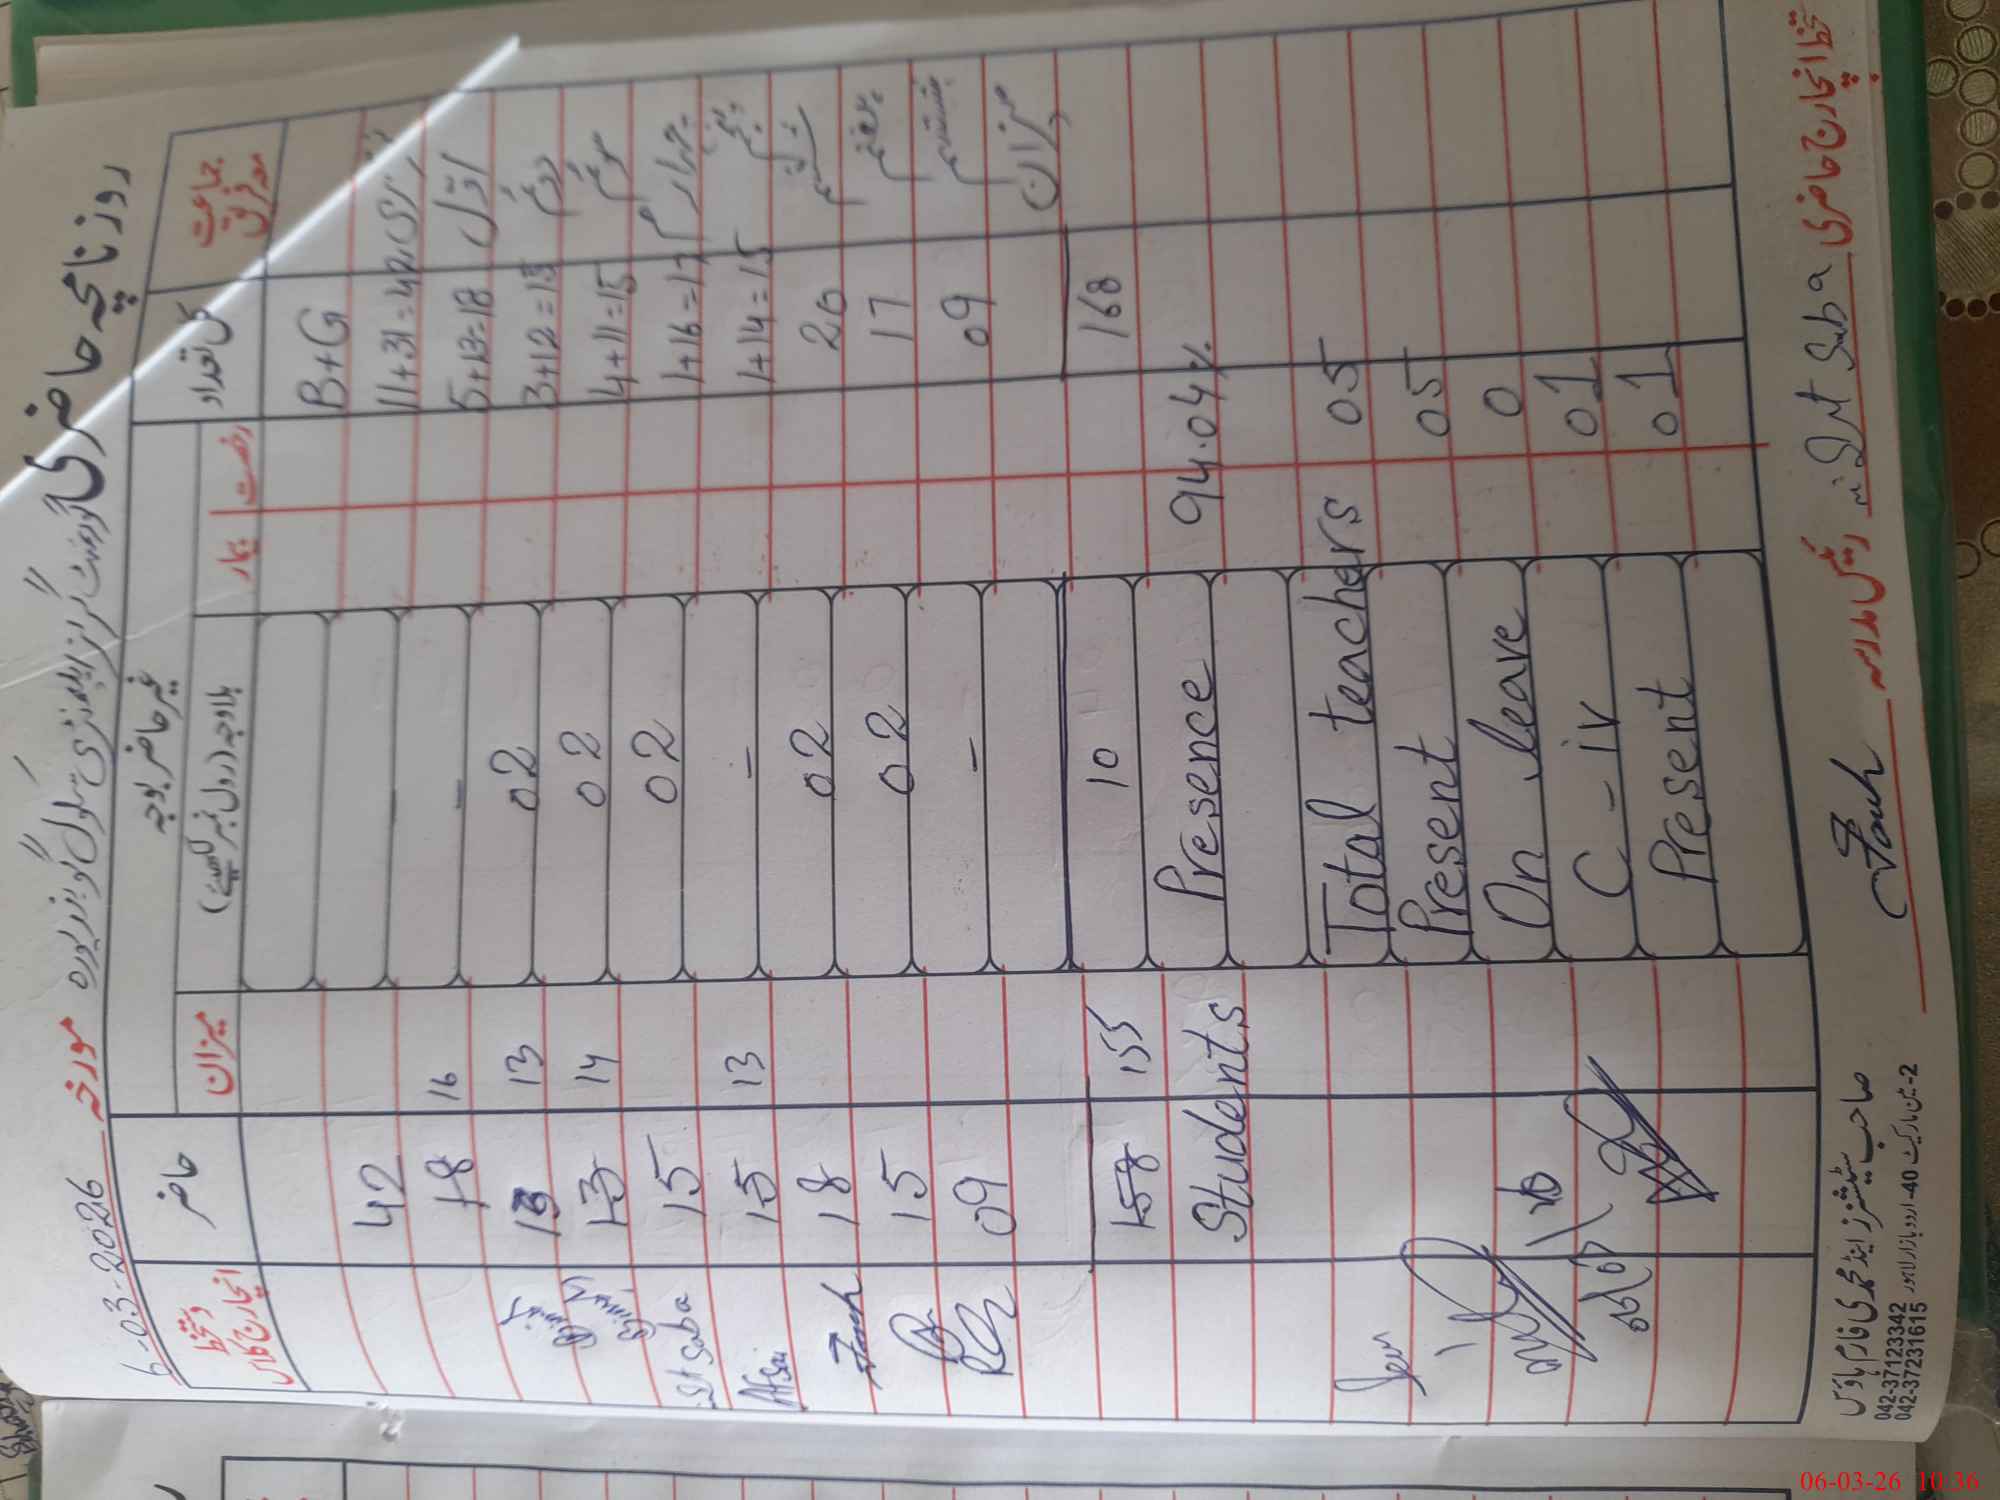 روزنامچہ حاضری گورنمنٹ گرلز ایلیمنٹری سکول گوبند پورہ مورخہ 6-03-2026
جماعت مدفریق
کل تعداد
غیر حاضر بوجہ
رخصت
بیمار
بلاوجہ (رول نمبر لکھیے)
میزان
حاضر
دستخط انچارج کلاس
B+G
نرسری 11+31=42 - 42
اوّل 5+13=18 - 16 18
دوئم 3+12=15 02 13
سوئم 4+11=15 02 14 13
چہارم 1+16=17 02 15 Saba
پنجم 1+14=15 - 13 15
ششم 20 02 18
ہفتم 17 02 15
ہشتم 09 - 09
میزان
168 10 155 158
Students Presence 94.04%
Total teachers 05
Present 05
On leave 0
C-iv 01
Present 01
دستخط انچارج حاضری Saba رئیس مدرسہ
صاحب سٹیشنرز اینڈ لمحمدی فارم ہاؤس
2-بیسمنٹ مارکیٹ 40-اردو بازار لاہور
042-37123342
042-37231615
06-03-26 10:36